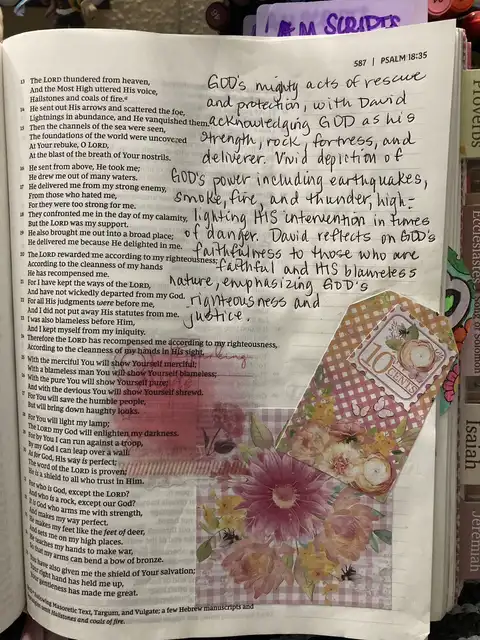 SCRIPTS
587 | PSALM 18:35
13 The LORD thundered from heaven,
And the Most High uttered His voice,
Hailstones and coals of fire.
14 He sent out His arrows and scattered the foe,
Lightnings in abundance, and He vanquished them.
15 Then the channels of the sea were seen,
The foundations of the world were uncovered
At Your rebuke, O LORD,
At the blast of the breath of Your nostrils.
16 He sent from above, He took me;
He drew me out of many waters.
17 He delivered me from my strong enemy,
From those who hated me,
For they were too strong for me.
18 They confronted me in the day of my calamity,
But the LORD was my support.
19 He also brought me out into a broad place;
He delivered me because He delighted in me.
20 The LORD rewarded me according to my righteousness;
According to the cleanness of my hands
He has recompensed me.
21 For I have kept the ways of the LORD,
And have not wickedly departed from my God.
22 For all His judgments were before me,
And I did not put away His statutes from me.
23 I was also blameless before Him,
And I kept myself from my iniquity.
24 Therefore the LORD has recompensed me according to my righteousness,
According to the cleanness of my hands in His sight.
25 With the merciful You will show Yourself merciful;
With a blameless man You will show Yourself blameless;
26 With the pure You will show Yourself pure;
And with the devious You will show Yourself shrewd.
27 For You will save the humble people,
But will bring down haughty looks.
28 For You will light my lamp;
The LORD my God will enlighten my darkness.
For by You I can run against a troop,
by my God I can leap over a wall.
As for God, His way is perfect;
The word of the LORD is proven;
He is a shield to all who trust in Him.
For who is God, except the LORD?
And who is a rock, except our God?
It is God who arms me with strength,
And makes my way perfect.
He makes my feet like the feet of deer,
And sets me on my high places.
He teaches my hands to make war,
So that my arms can bend a bow of bronze.
You have also given me the shield of Your salvation;
Your right hand has held me up,
Your gentleness has made me great.
following Masoretic Text, Targum, and Vulgate; a few Hebrew manuscripts and
Hailstones and coals of fire.
GOD's mighty acts of rescue
and protection, with David
acknowledging GOD as his
strength, rock, fortress, and
deliverer. Vivid depiction of
GOD's power including earthquakes,
smoke, fire, and thunder, high-
lighting HIS intervention in times
of danger. David reflects on GOD's
faithfulness to those who are
faithful and HIS blameless
nature, emphasizing GOD's
righteousness and
justice.
10
CENTS
Proverbs
Ecclesiastes
Isaiah
Jeremiah